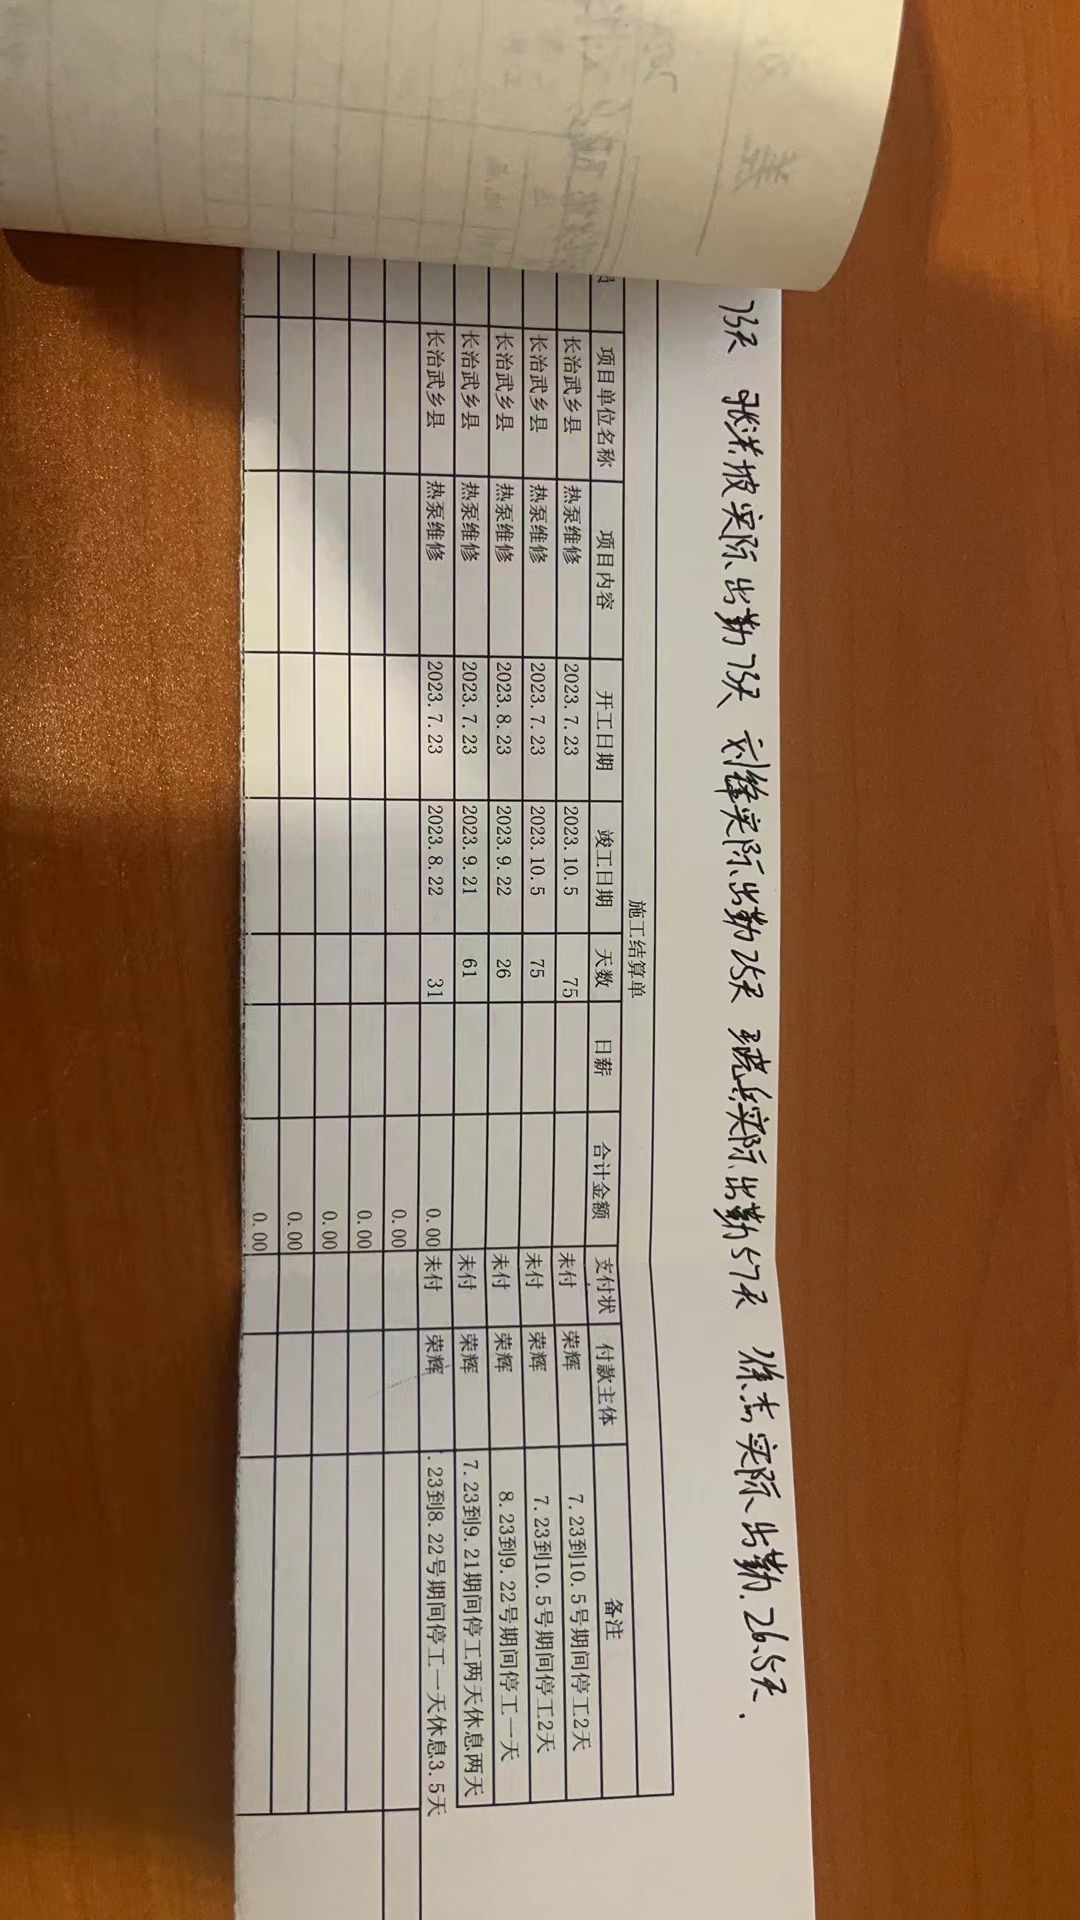 73天 张洪坡实际出勤73天 刘锋实际出勤25天 晓兵实际出勤57天 徐杰实际出勤.26.5天.
施工结算单
员 项目单位名称 项目内容 开工日期 竣工日期 天数 日薪 合计金额 支付状 付款主体 备注
长治武乡县 热泵维修 2023.7.23 2023.10.5 75 未付 荣辉 7.23到10.5号期间停工2天
长治武乡县 热泵维修 2023.7.23 2023.10.5 75 未付 荣辉 7.23到10.5号期间停工2天
长治武乡县 热泵维修 2023.8.23 2023.9.22 26 未付 荣辉 8.23到9.22号期间停工一天
长治武乡县 热泵维修 2023.7.23 2023.9.21 61 未付 荣辉 7.23到9.21期间停工两天休息两天
长治武乡县 热泵维修 2023.7.23 2023.8.22 31 0.00 未付 荣辉 .23到8.22号期间停工一天休息3.5天
0.00
0.00
0.00
0.00
0.00